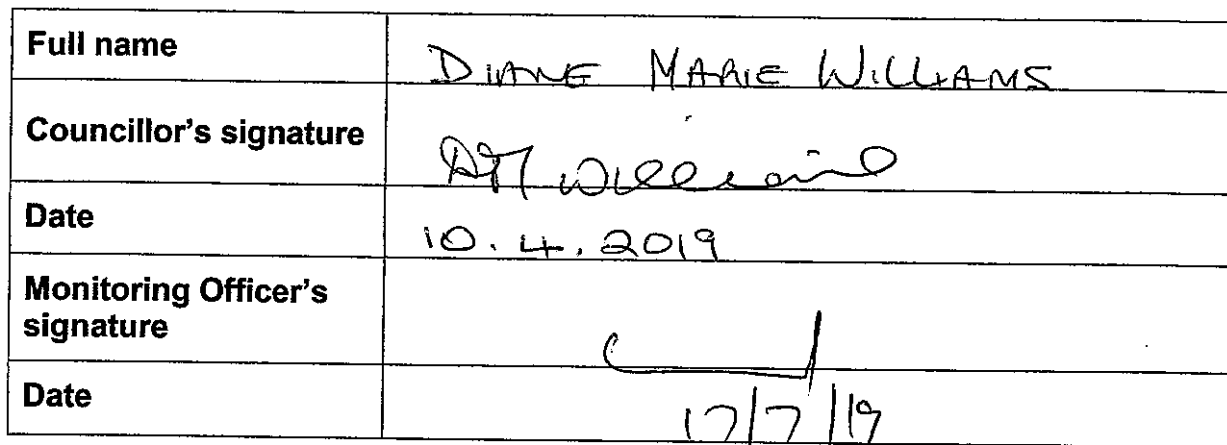 Full name
DIANE MARIE WILLIAMS
Councillor's signature
DM Williams
Date
10.4.2019
Monitoring Officer's
signature
Date
17/7/19